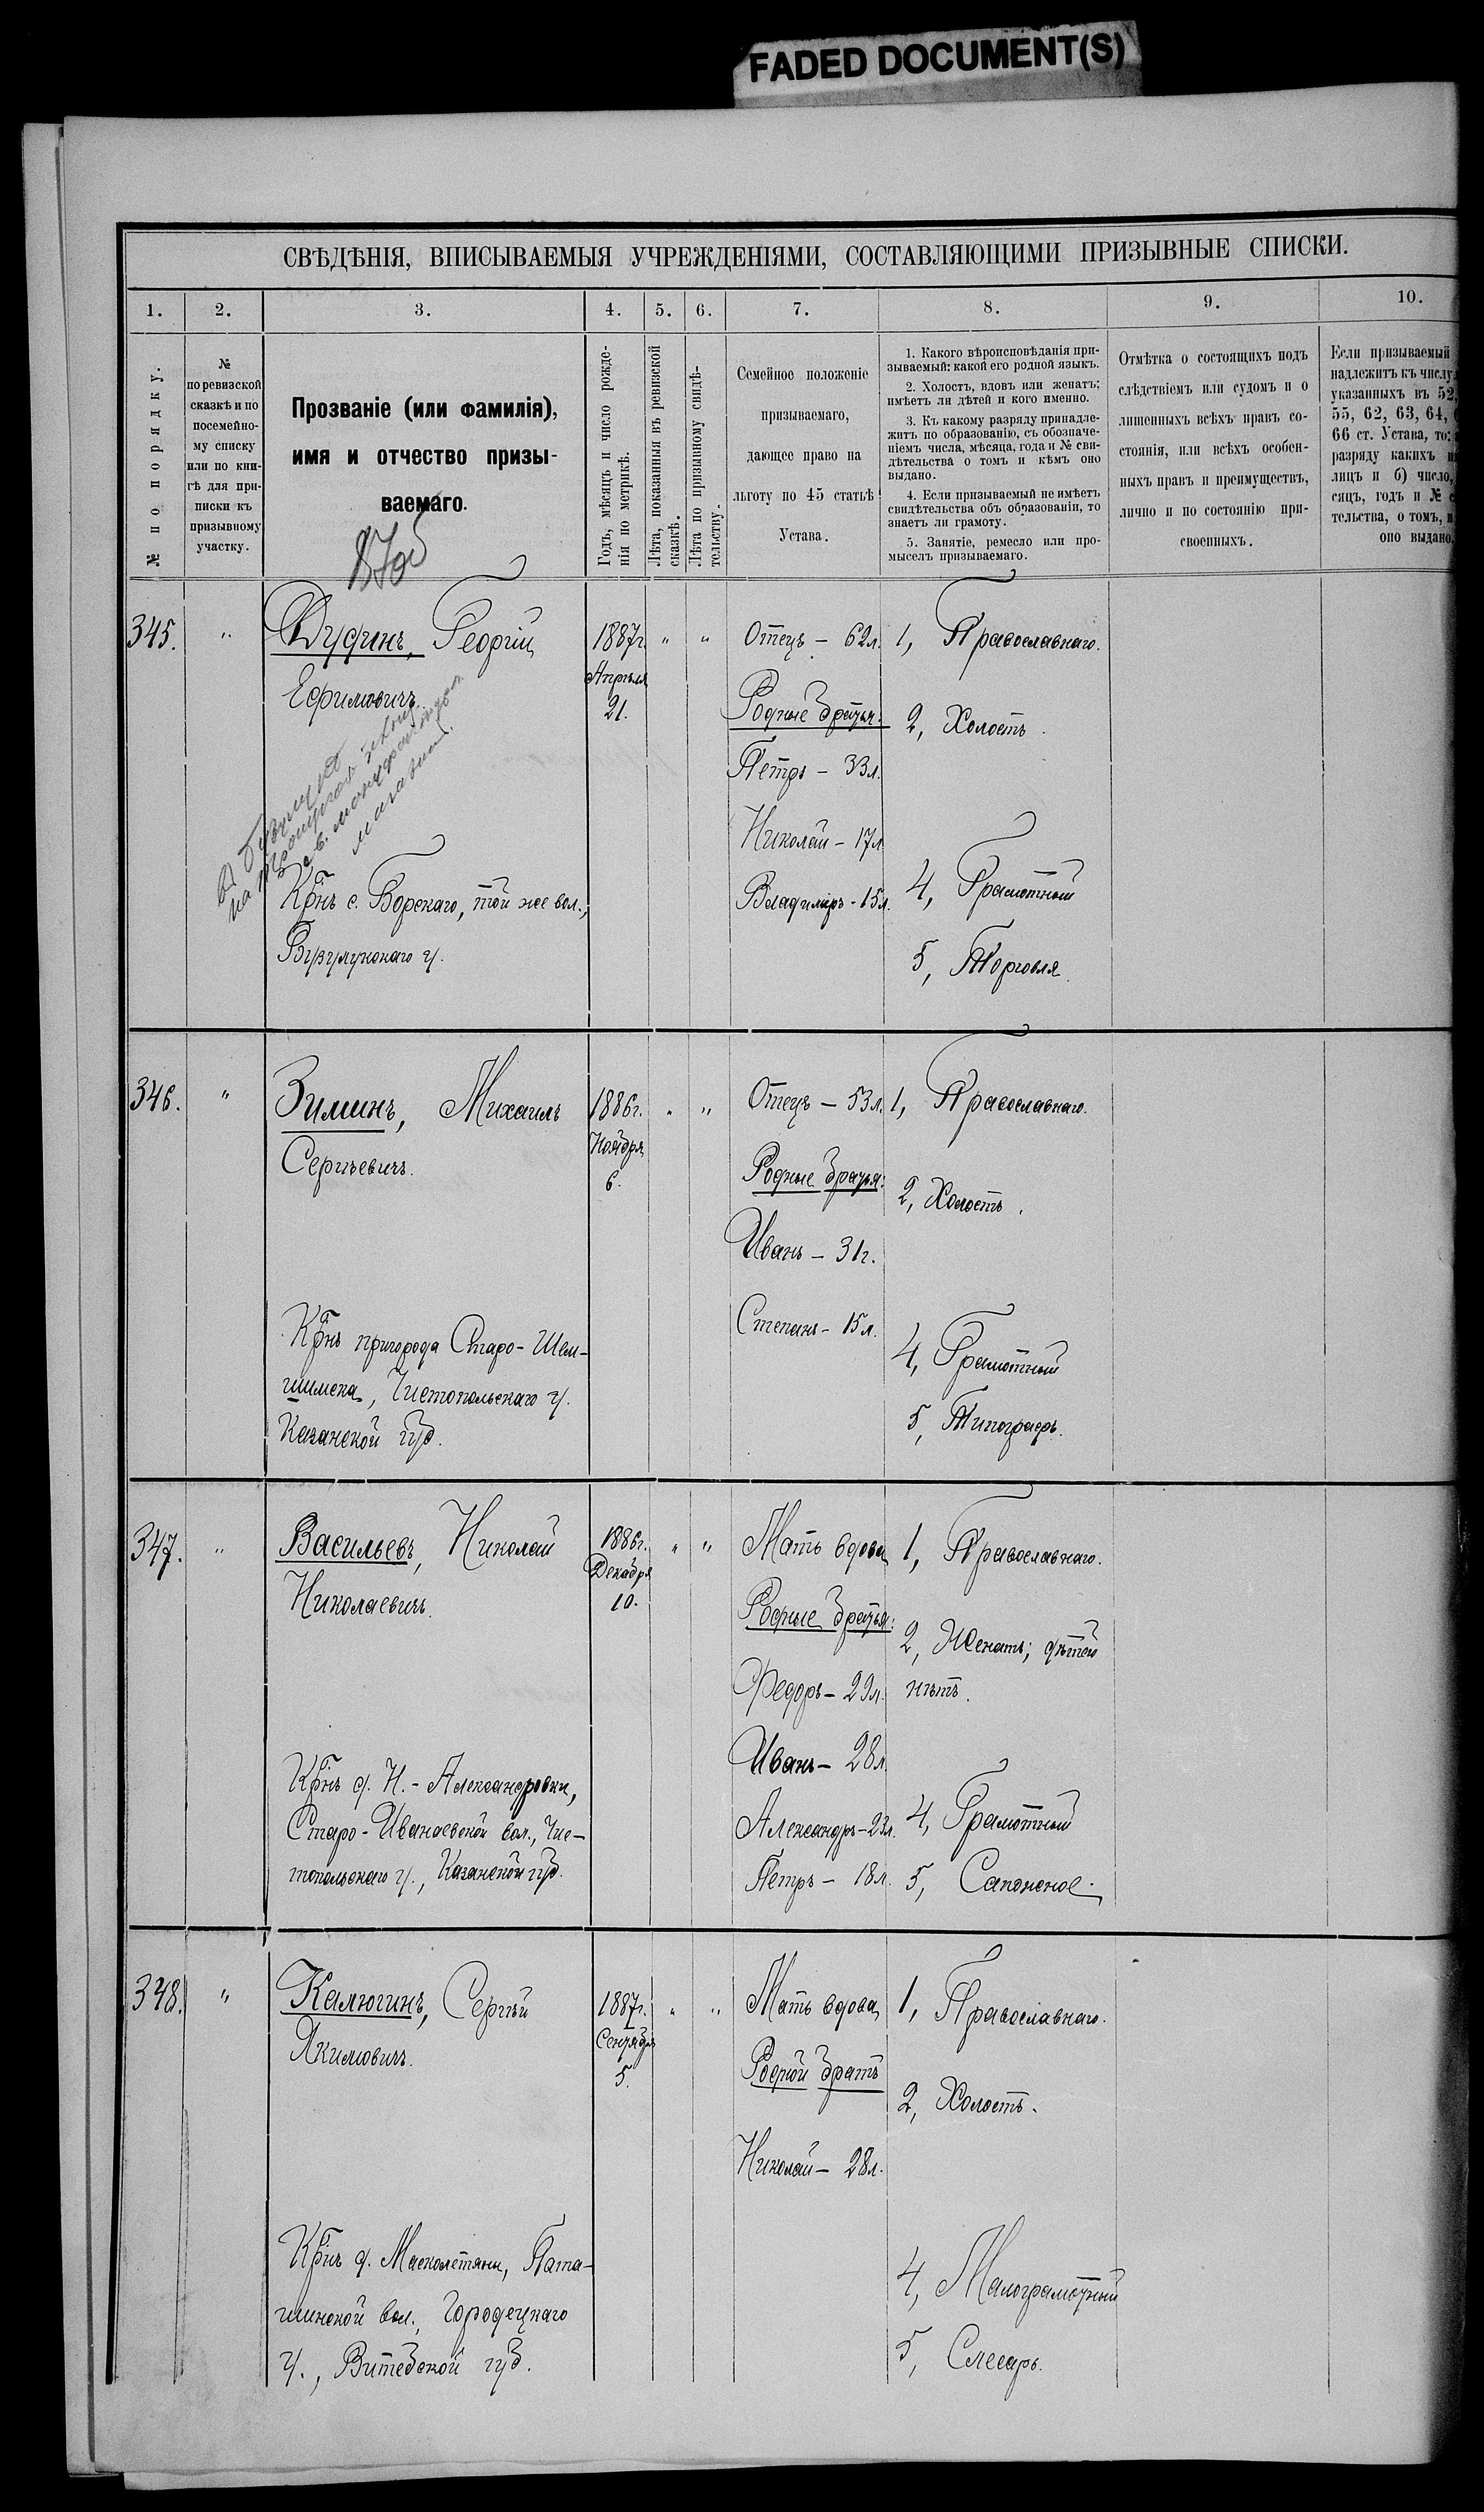 FADED DOCUMENT(S)
СВѢДѢНІЯ, ВПИСЫВАЕМЫЯ УЧРЕЖДЕНІЯМИ, СОСТАВЛЯЮЩИМИ ПРИЗЫВНЫЕ СПИСКИ.
1.
2.
3.
4.
5.
6.
7.
8.
9.
10.
№ по порядку.
№
по ревизской
сказкѣ и по
посемейно-
му списку
или по кни-
гѣ для при-
писки къ
призывному
участку.
Прозваніе (или фамилія),
имя и отчество призы-
ваемаго.
Годъ, мѣсяцъ и число рожде-
нія по метрикѣ.
Лѣта, показанныя въ ревизской
сказкѣ.
Лѣта по призывному свидѣ-
тельству.
Семейное положеніе
призываемаго,
дающее право на
льготу по 45 статьѣ
Устава.
1. Какого вѣроисповѣданія при-
зываемый: какой его родной языкъ.
2. Холостъ, вдовъ или женатъ;
имѣетъ ли дѣтей и кого именно.
3. Къ какому разряду принадле-
житъ по образованію, съ обозначе-
ніемъ числа, мѣсяца, года и № сви-
дѣтельства о томъ и кѣмъ оно
выдано.
4. Если призываемый не имѣетъ
свидѣтельства объ образованіи, то
знаетъ ли грамоту.
5. Занятіе, ремесло или про-
мыселъ призываемаго.
Отмѣтка о состоящихъ подъ
слѣдствіемъ или судомъ и о
лишенныхъ всѣхъ правъ со-
стоянія, или всѣхъ особен-
ныхъ правъ и преимуществъ,
лично и по состоянію при-
своенныхъ.
Если призываемый
надлежитъ къ числу
указанныхъ въ 52,
55, 62, 63, 64,
66 ст. Устава, то:
разряду какихъ
лицъ и б) число,
сяцъ, годъ и №
тельства, о томъ,
оно выдано.
345.
"
Дудинъ, Георгій
Ефимовичъ.
Крнъ с. Борскаго, той же вол.,
Бузулукскаго у.
1887г.
Апрѣля
21.
"
"
Отецъ - 62л.
Родные братья:
Петръ - 33л.
Николай - 17л.
Владиміръ - 15л.
1, Православнаго.
2, Холостъ.
4, Грамотный
5, Торговля.
346.
"
Зиминъ, Михаилъ
Сергѣевичъ.
Крнъ пригорода Старо-Шеш-
минска, Чистопольскаго у.
Казанской губ.
1886г.
Ноября
6.
"
"
Отецъ - 53л.
Родные братья:
Иванъ - 31г.
Степанъ - 15л.
1, Православнаго.
2, Холостъ.
4, Грамотный
5, Типографъ.
347.
"
Васильевъ, Николай
Николаевичъ.
Крнъ д. Н.-Александровки,
Старо-Иванаевской вол., Чис-
топольскаго у., Казанской губ.
1886г.
Декабря
10.
"
"
Мать вдова
Родные братья:
Федоръ - 29л.
Иванъ - 28л.
Александръ - 23л.
Петръ - 18л.
1, Православнаго.
2, Женатъ; дѣтей
нѣтъ.
4, Грамотный
5, Сапожное.
348.
"
Калюгинъ, Сергѣй
Якимовичъ.
Крнъ д.
вол., Городецкаго
у., Витебской губ.
1887г.
Сентября
5.
"
"
Мать вдова
Родной братъ
Николай - 28л.
1, Православнаго.
2, Холостъ.
4, Малограмотный
5, Слесарь.